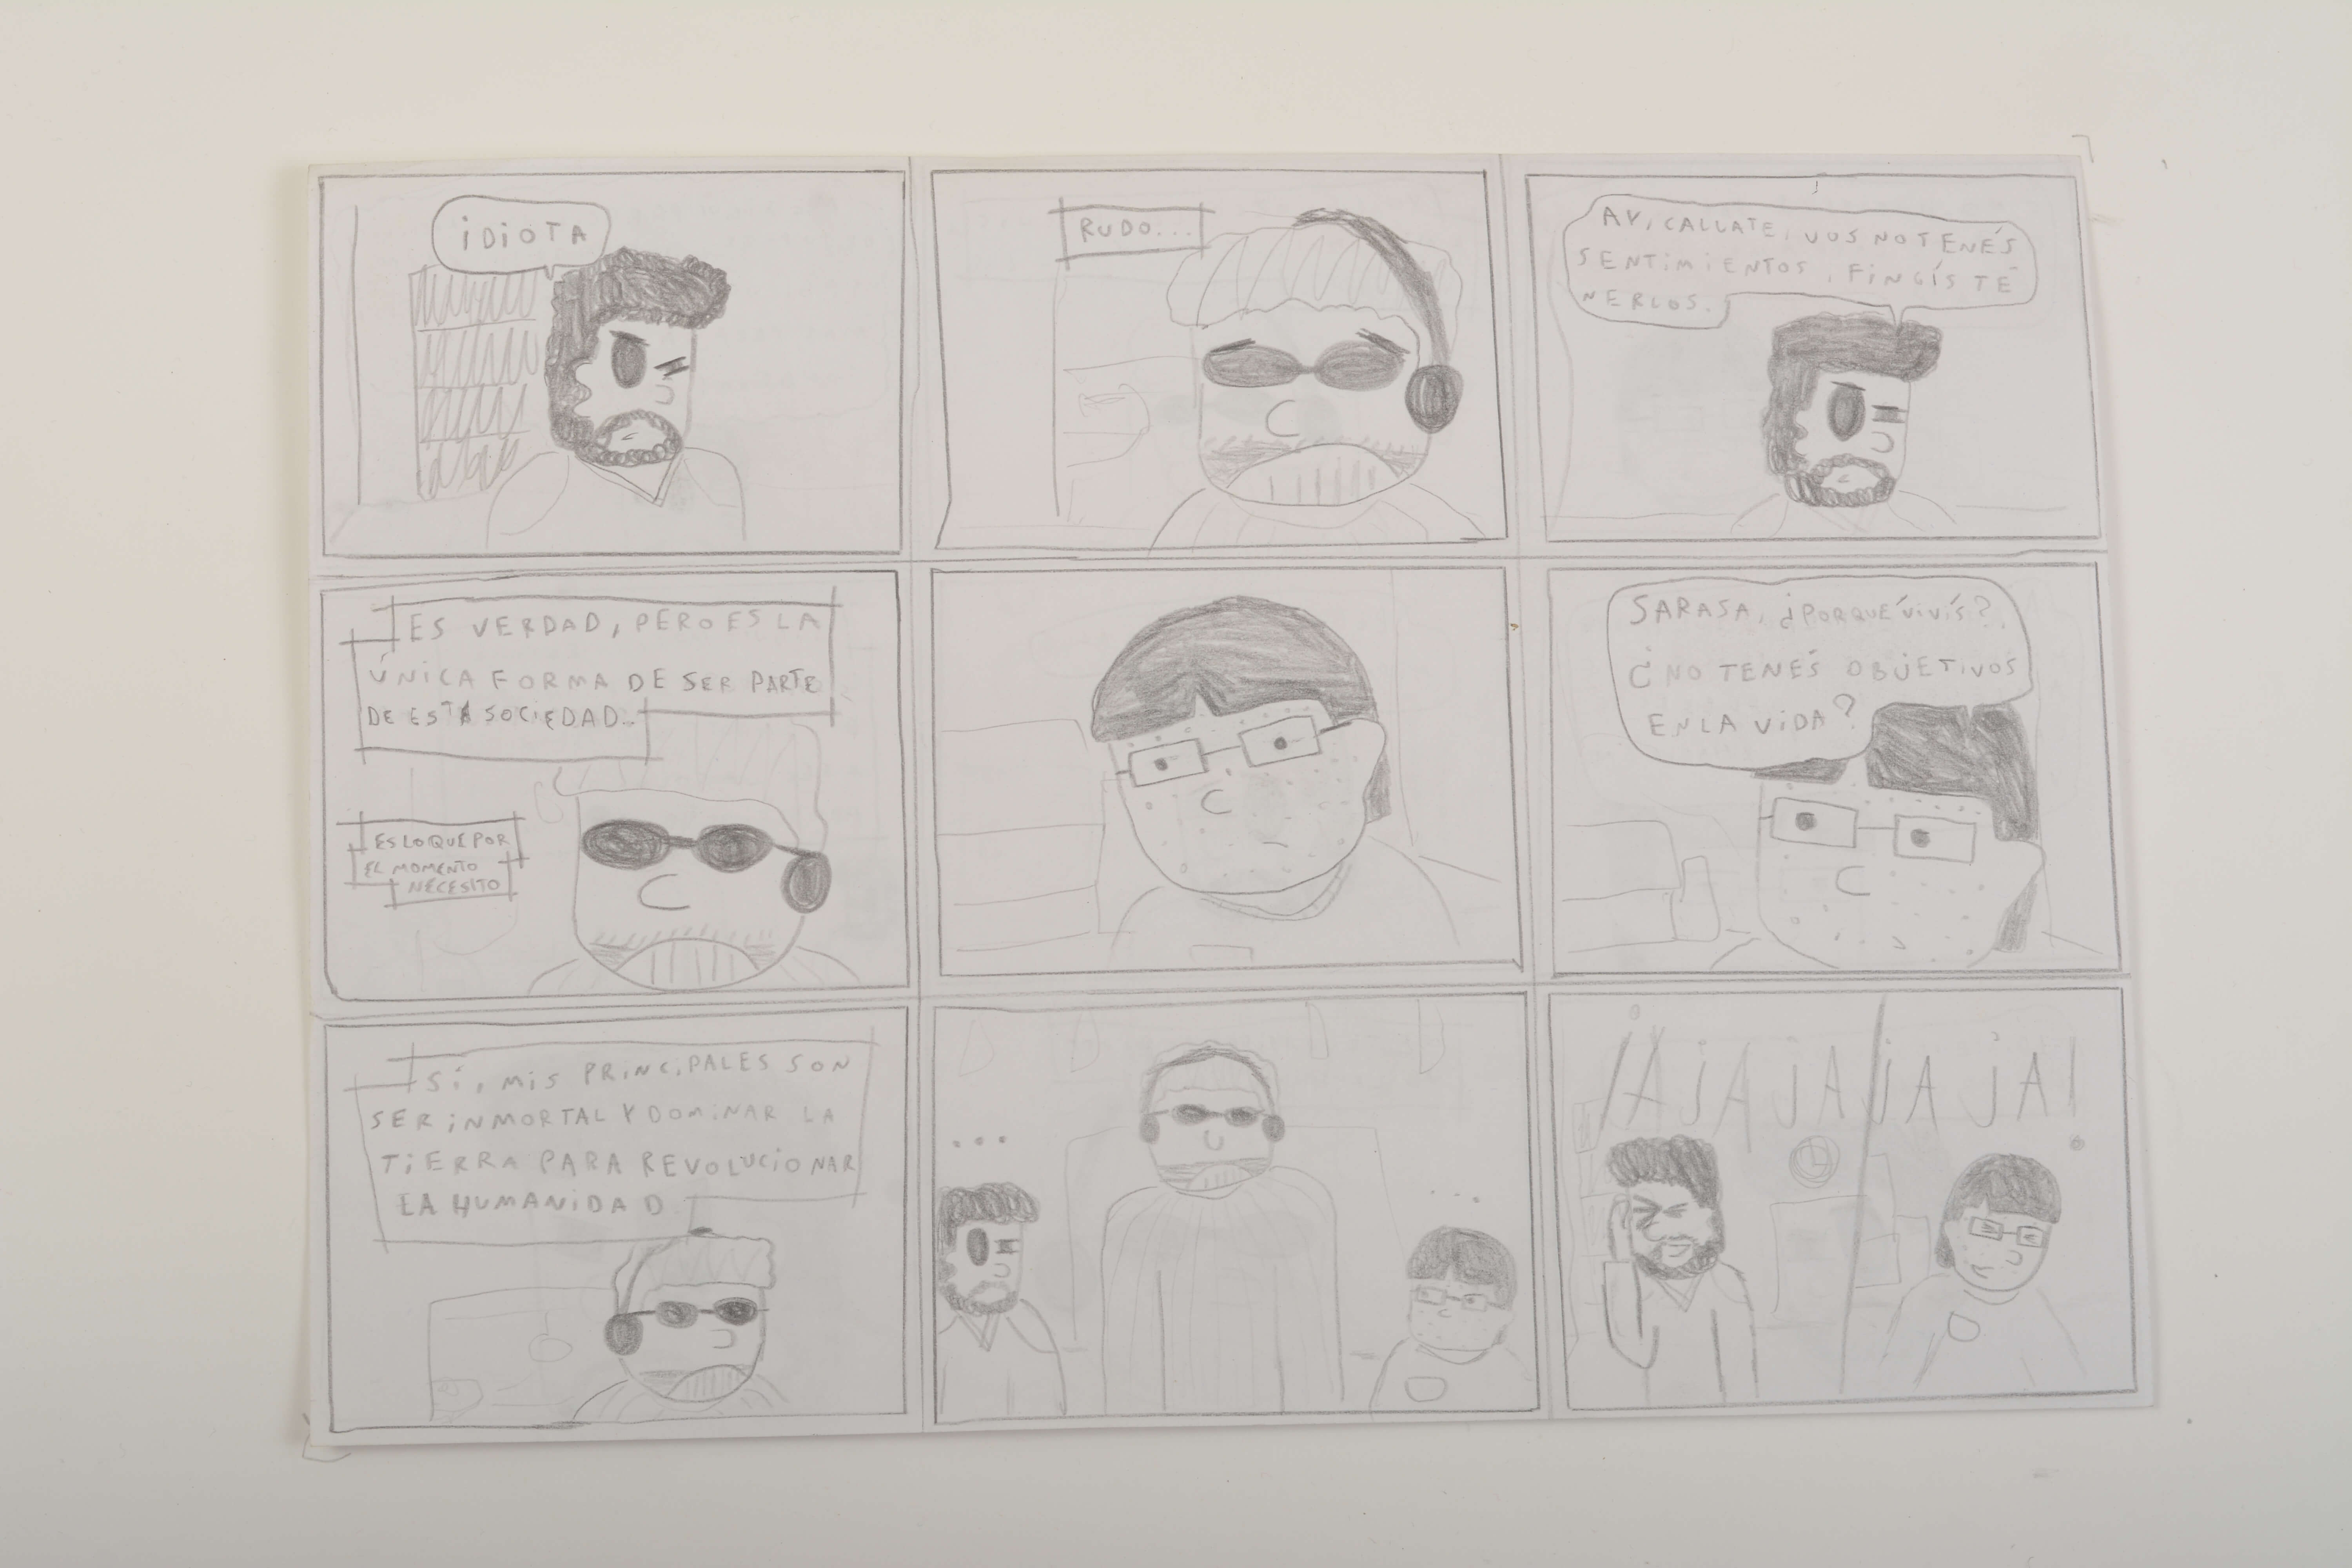 iDiOTA
RUDO...
AY, CALLATE, VOS NO TENÉS
SENTiMiENTOS, FiNGÍS TE
NERLOS.
ES VERDAD, PERO ES LA
ÚNiCA FORMA DE SER PARTE
DE ESTA SOCiEDAD...
ES LO QUE POR
EL MOMENTO
NECESiTO
SARASA, ¿PORQUÉ ViVíS?,
¿NO TENÉS OBJETiVOS
EN LA ViDA?
SÍ, MiS PRiNCiPALES SON
SER iNMORTAL Y DOMiNAR LA
TiERRA PARA REVOLUCiONAR
LA HUMANiDAD
...
...
¡AJAJAJAJA!